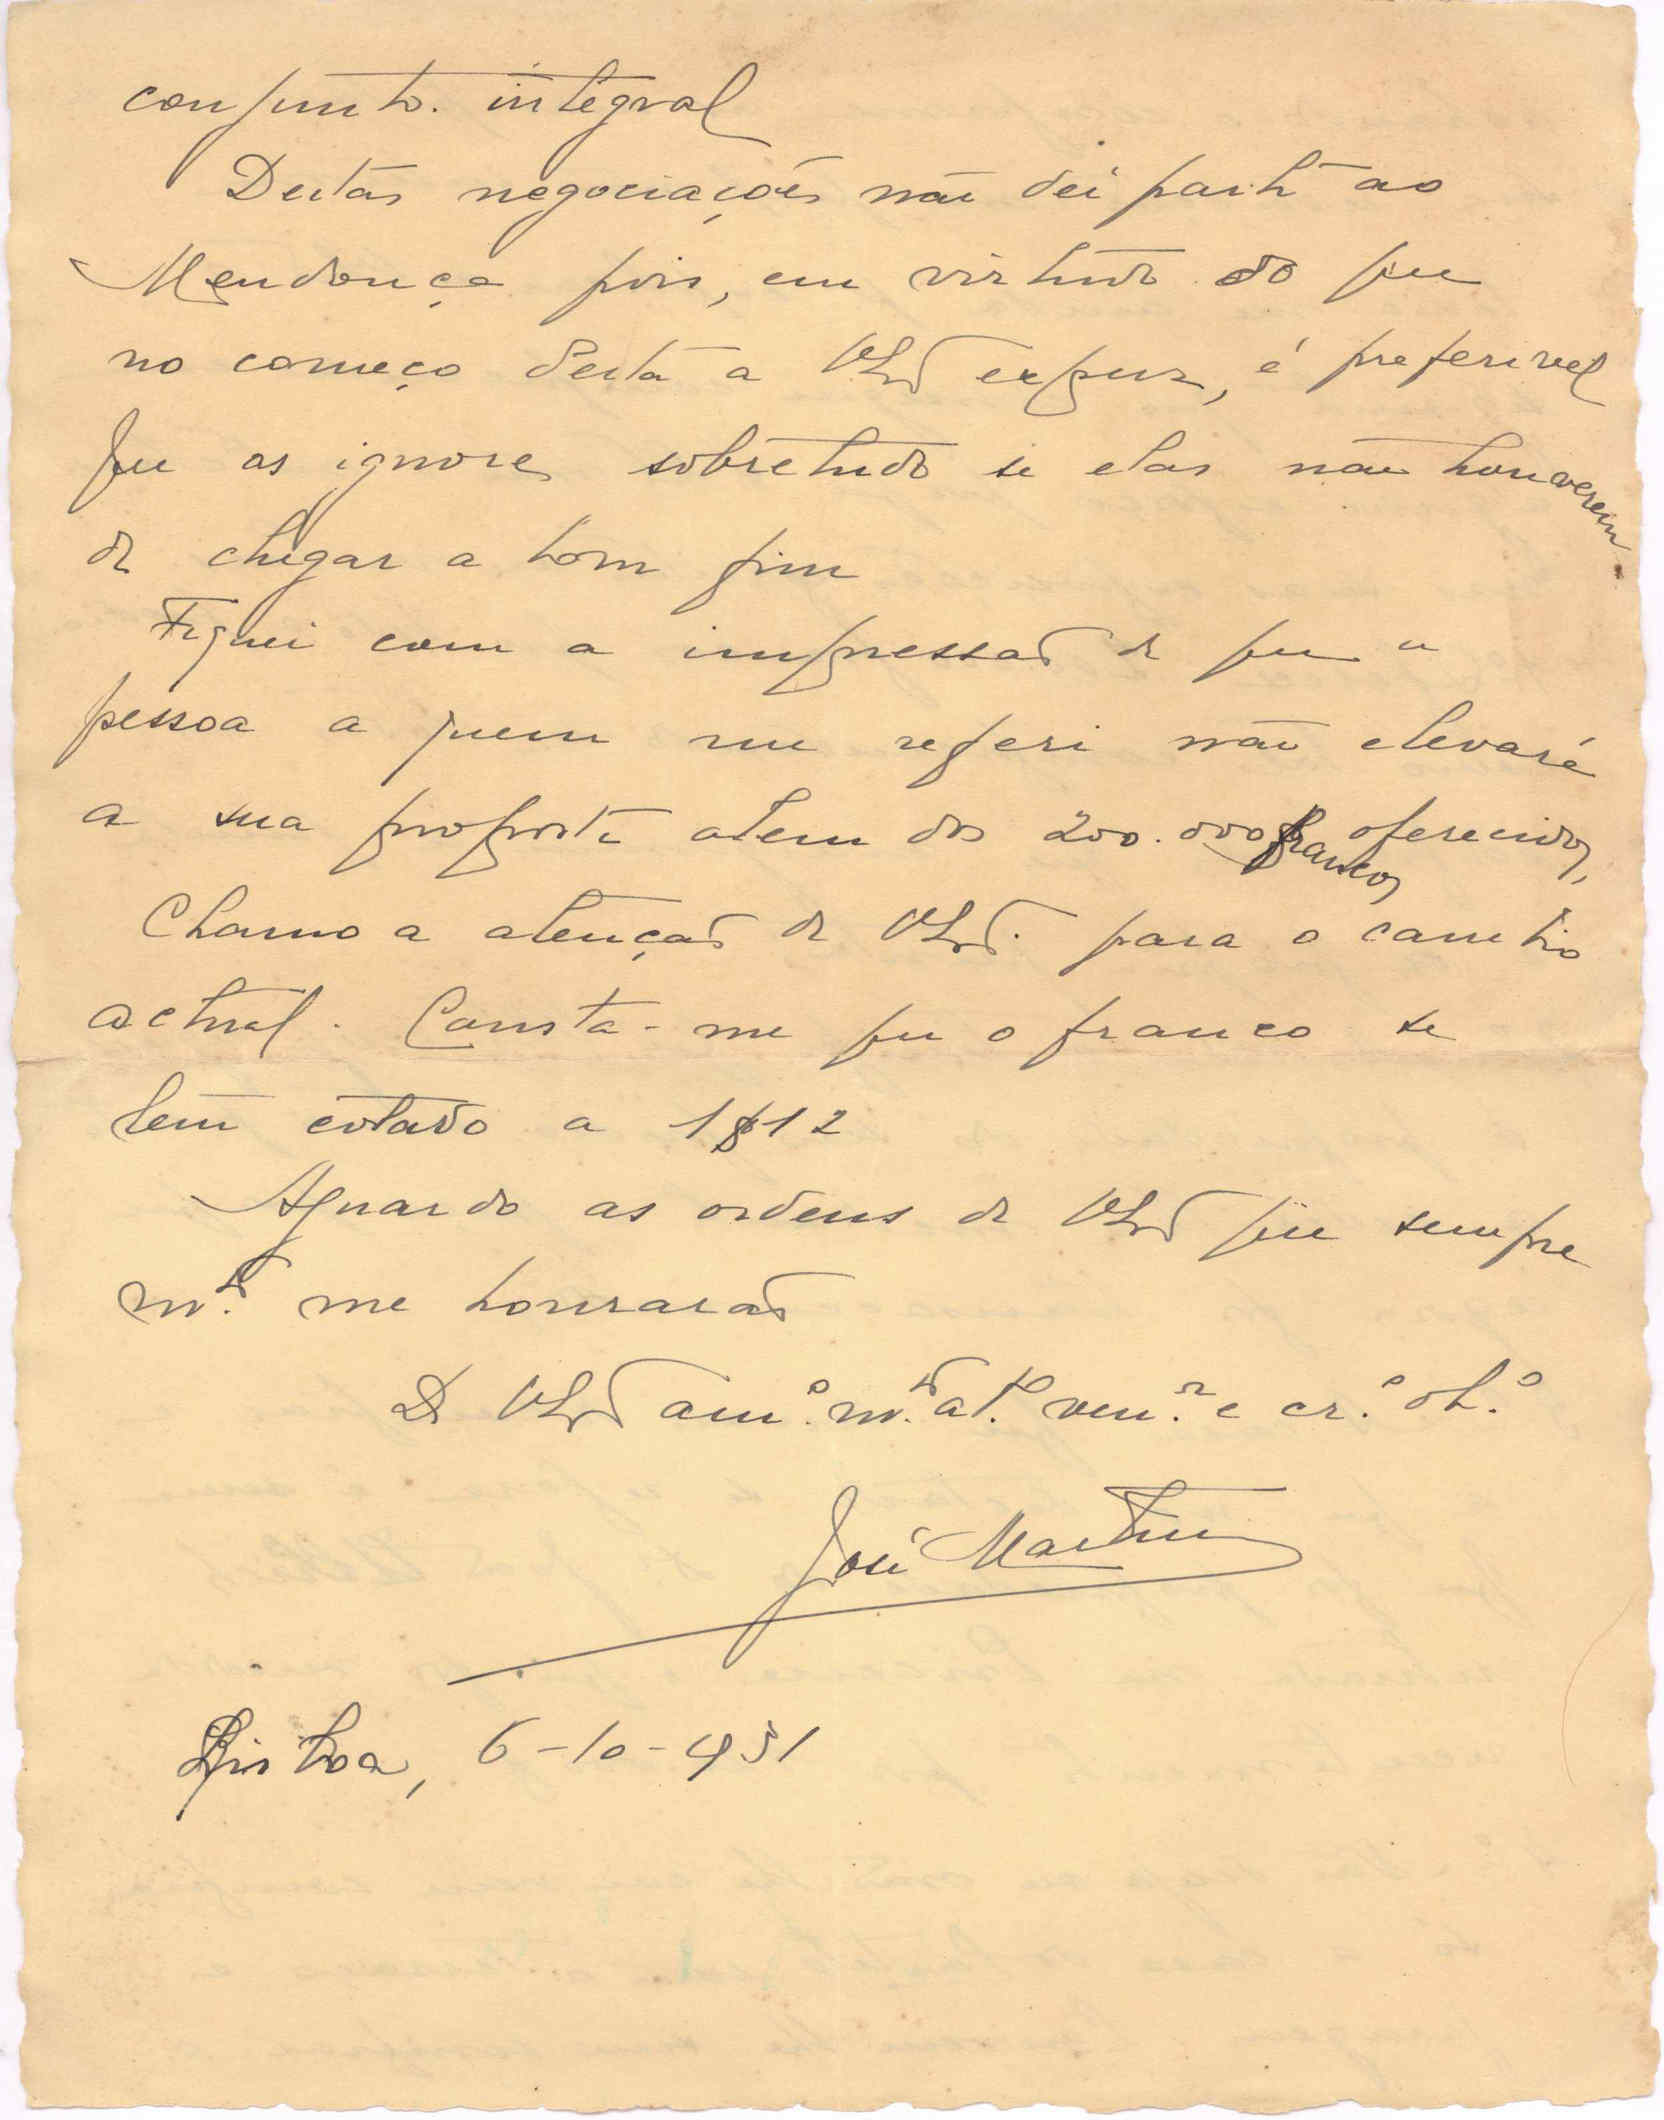 conjunto integral
Destas negociações não dei parte ao
Mendonça pois, em virtude do que
no começo desta a V. expuz, é preferivel
que as ignore, sobretudo se elas não houverem
de chegar a bom fim
Fiquei com a impressão de que a
pessoa a quem me referi não elevará
a sua proposta alem dos 200.000 francos oferecidos,
Chamo a atenção de para o cambio
actual. Consta-me que o franco se
tem cotado a 1$12
Aguardo as ordens de que sempre
m.to me honrarão
De am.o m.to at.to ven.or e cr.o ob.o
José Martins
Lisboa, 6-10-931